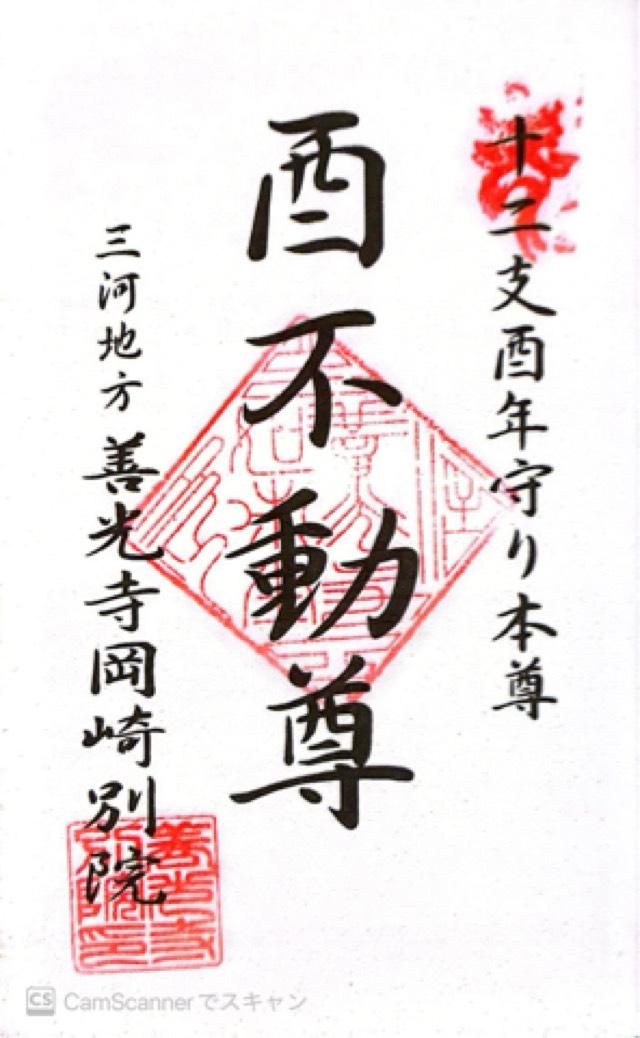 十二支酉年守り本尊
酉不動尊
三河地方 善光寺岡崎別院
善光寺
別院印
CS CamScannerでスキャン